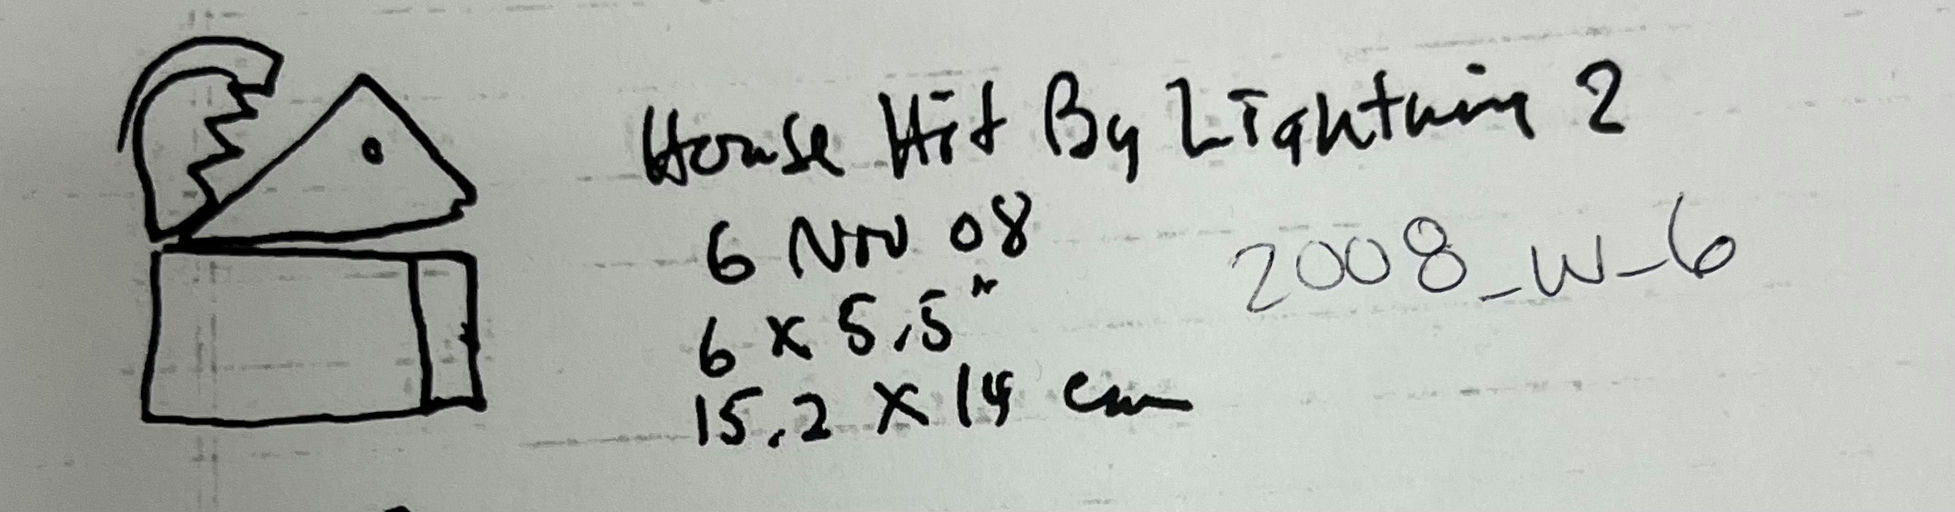 House Hit By Lightning 2
6 Nov 08
2008_W_6
6 x 5.5"
15.2 x 14 cm